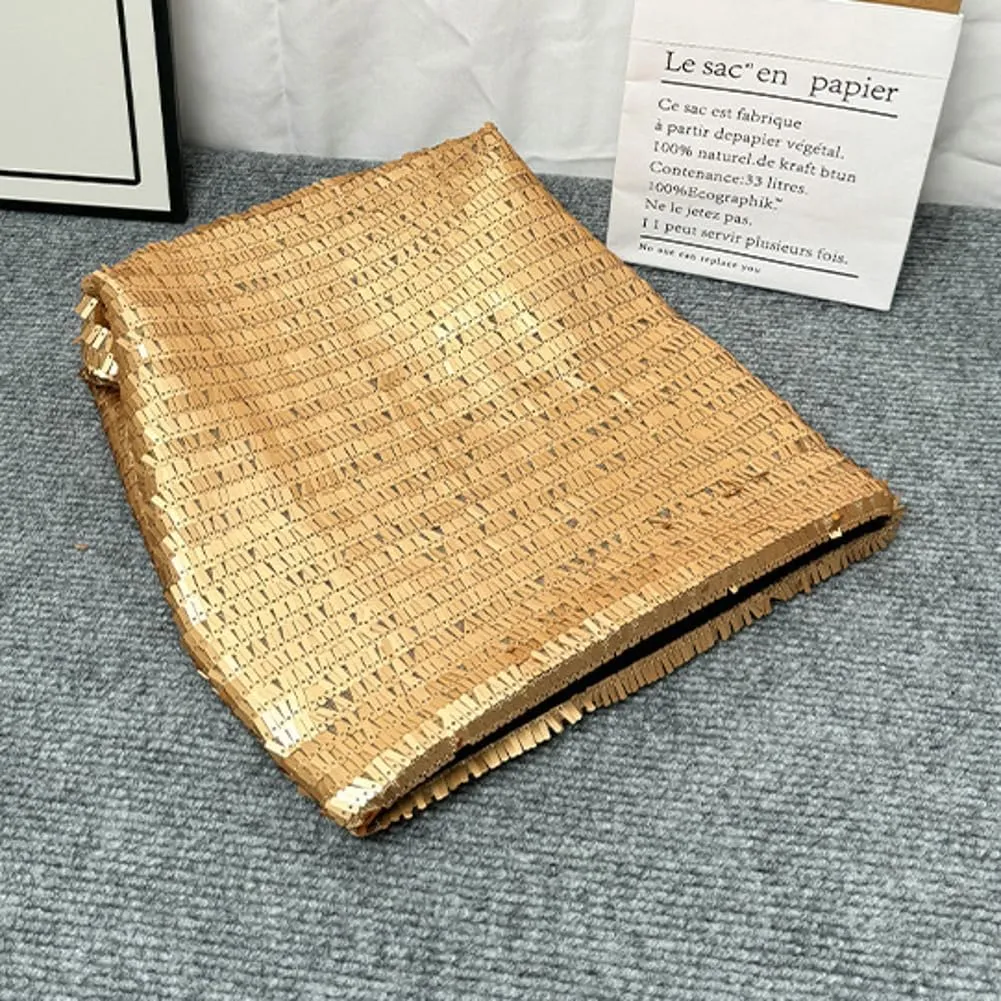 Le sac en papier
Ce sac est fabrique
à partir depapier végétal.
100% naturel.de kraft btun
Contenance:33 litres.
100%Ecographik.
Ne le jetez pas.
I 1 peut servir plusieurs fois.
No one can replace you